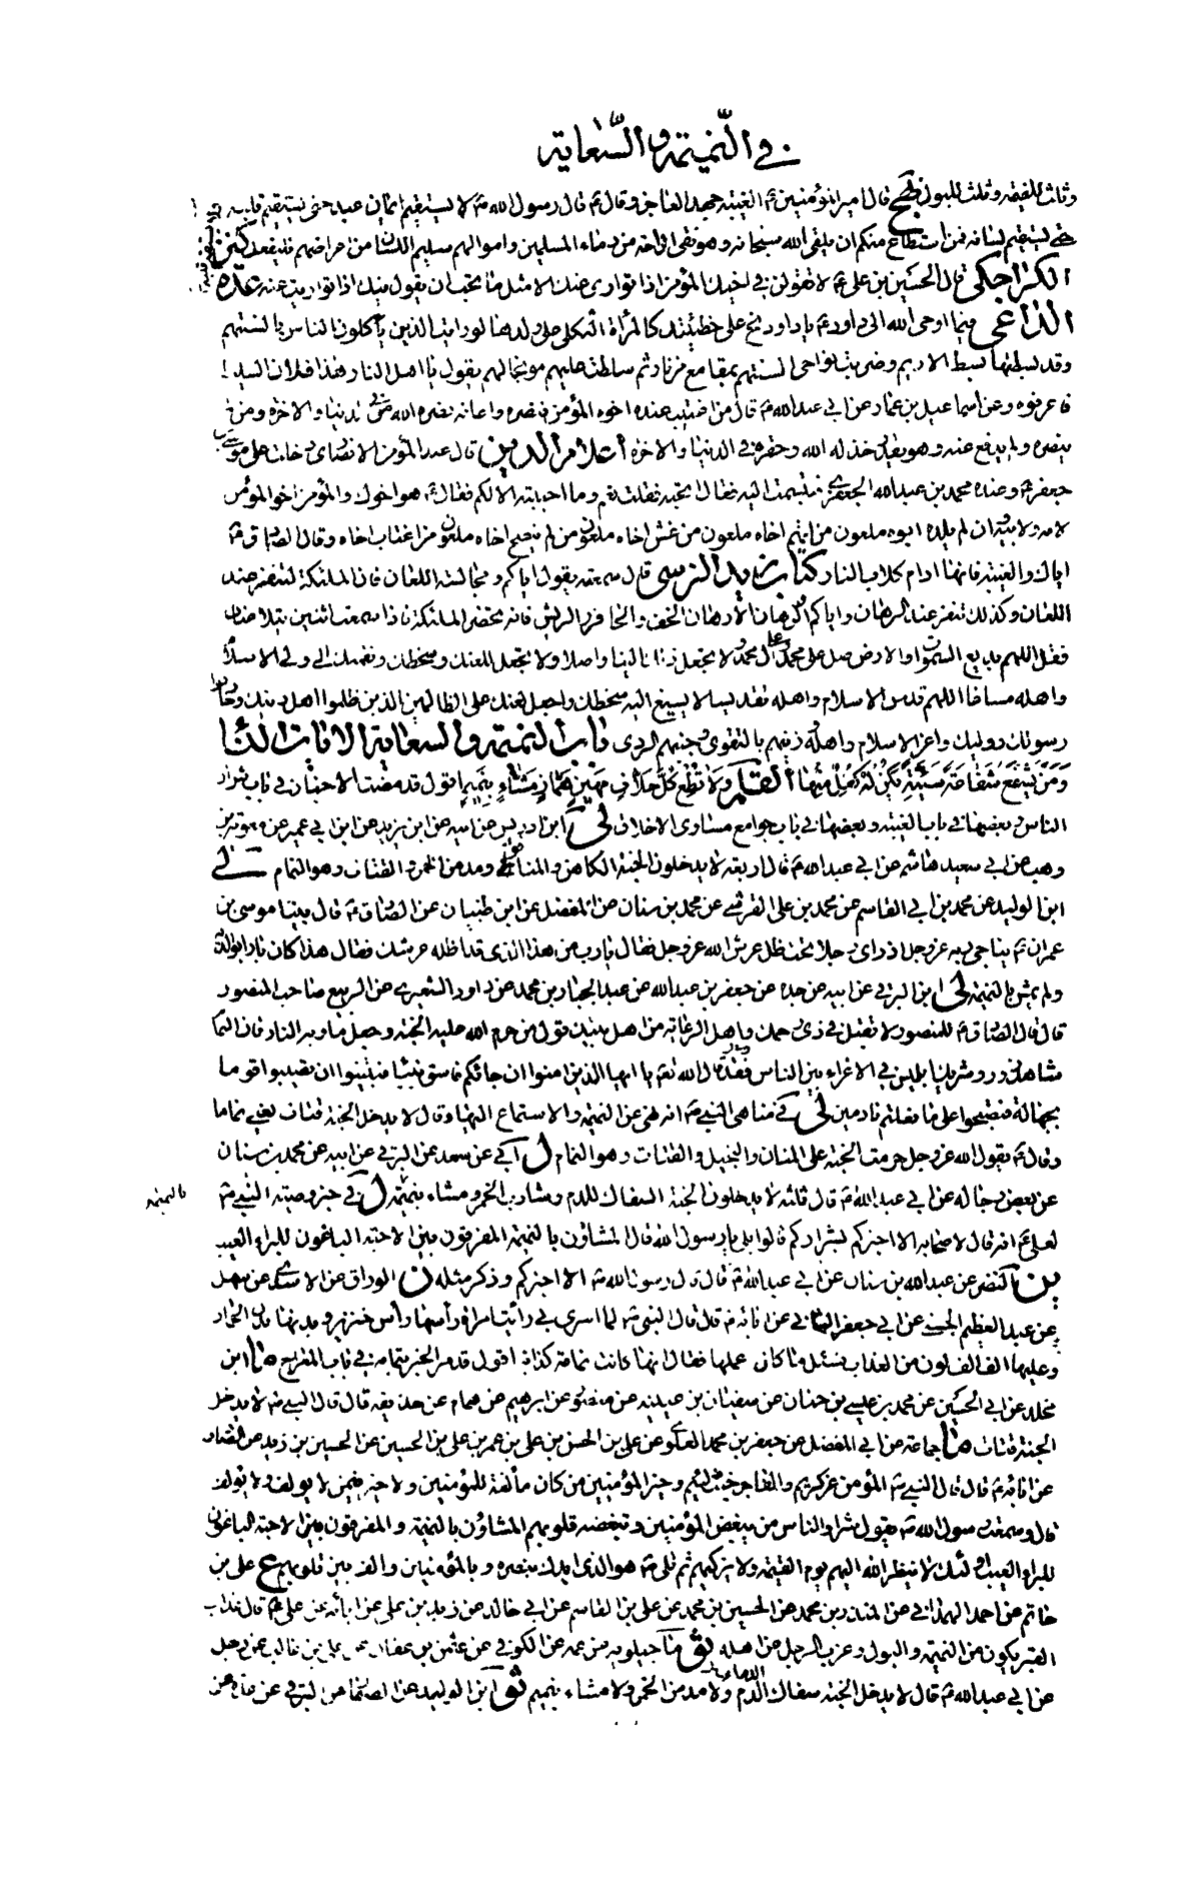 في النميمة والسعاية
وثلث للغيبة وثلث للبول نهج قال اميرالمؤمنين ع الغيبة جهد العاجز وقال ع قال رسول الله ص لا يستقيم ايمان عبد حتى يستقيم قلبه ولا
حتى يستقيم لسانه فمن استطاع منكم ان يلقى الله سبحانه وهو نقي الراحة من دماء المسلمين واموالهم سليم اللسان من اعراضهم فليفعل كنز
الكراجكي قال الحسين بن علي ع لا تقولن في اخيك المؤمن اذا توارى عنك الا مثل ما تحب ان يقول فيك اذا تواريت عنه عدة
الداعي فيما اوحى الله الى داود ع يا داود نح على خطيئتك كالمرأة الثكلى على ولدها لو رايت الذين ياكلون الناس بالسنتهم
وقد بسطتها بسط الاديم وضربت نواحي السنتهم بمقامع من نار ثم سلطت عليهم موبخا لهم يقول يا اهل النار هذا فلان السليط
فاعرفوه وعن اسماعيل بن عمار عن ابي عبدالله ع قال من اغتيب عنده اخوه المؤمن فنصره واعانه نصره الله في الدنيا والاخرة ومن لم
ينصره ولم يدفع عنه وهو يقدر خذله الله وحقره في الدنيا والاخرة اعلام الدين قال عبد المؤمن الانصاري دخلت على موسى بن
جعفر ع وعنده محمد بن عبدالله الجعفري فتبسمت اليه فقال اتحبه فقلت نعم وما احببته الا لكم فقال ع هو اخوك والمؤمن اخو المؤمن
لامه ولابيه وان لم يلده ابوه ملعون من اتهم اخاه ملعون من غش اخاه ملعون من لم ينصح اخاه ملعون من اغتاب اخاه وقال الصادق ع
اياك والغيبة فانها ادام كلاب النار كتاب زيد النرسي قال سمعته يقول اياكم ومجالسة اللعان فان الملئكة لتنفر عند
اللعان وكذلك تنفر عند الرهان واياكم والرهان الا رهان الخف والحافر والريش فانه تحضر الملئكة فاذا سمعت اثنين يتلاعنان
فقل اللهم بديع السموات والارض صل على محمد وآل محمد ولا تجعل ذلك الينا واصلا ولا تجعل للعنك وسخطك ونقمتك الى ولي الاسلام
واهله مساغا اللهم قدس الاسلام واهله تقديسا لا يسيغ اليه سخطك واجعل لعنك على الظالمين الذين ظلموا اهل دينك وحاربوا
رسولك ووليك واعز الاسلام واهله وزينهم بالتقوى وجنبهم الردى باب النميمة والسعاية الايات النسا
وَمَنْ يَشْفَعْ شَفَاعَةً سَيِّئَةً يَكُنْ لَهُ كِفْلٌ مِنْهَا القلم وَلَا تُطِعْ كُلَّ حَلَّافٍ مَهِينٍ هَمَّازٍ مَشَّاءٍ بِنَمِيمٍ اقول قد مضت الاخبار في باب شرار
الناس وبعضها في باب الغيبة وبعضها في باب جوامع مساوى الاخلاق لى ابن ادريس عن ابيه عن ابن يزيد عن ابن ابي عمير عن معوية بن
وهب عن ابي سعيد هاشم عن ابي عبدالله ع قال اربعة لا يدخلون الجنة الكاهن والمنافق ومدمن الخمر والقتات وهو النمام لى
ابن الوليد عن محمد بن ابي القاسم عن محمد بن علي القرشي عن محمد بن سنان عن المفضل عن ابن ظبيان عن الصادق ع قال بينا موسى بن
عمران ع يناجي ربه عز وجل اذ راى رجلا تحت ظل عرش الله عز وجل فقال يا رب من هذا الذي قد اظله عرشك فقال هذا كان بارا بوالديه
ولم يمش بالنميمة لى ابن البرقي عن ابيه عن جده عن جعفر بن عبدالله عن عبد الجبار بن محمد عن داود الشعيري عن الربيع صاحب المنصور
قال قال الصادق ع للمنصور لا تقبل في ذي رحمك واهل الرعاية من اهل بيتك قول من حرم الله عليه الجنة وجعل ماويه النار فان النمام
شاهد زور وشريك ابليس في الاغراء بين الناس فقد قال الله تعالى يا ايها الذين امنوا ان جائكم فاسق بنبأ فتبينوا ان تصيبوا قوما
بجهالة فتصبحوا على ما فعلتم نادمين لى في مناهي النبي ص انه نهى عن النميمة والاستماع اليها وقال لا يدخل الجنة قتات يعني نماما
وقال ع يقول الله عز وجل حرمت الجنة على المنان والبخيل والقتات وهو النمام ل ابي عن سعد عن البرقي عن ابيه عن محمد بن سنان
عن بعض رجاله عن ابي عبدالله ع قال ثلثة لا يدخلون الجنة السفاك للدم وشارب الخمر ومشاء بنميمة ل في خبر وصية النبي ص
بالنميمة
لعلي ع انه قال لاصحابه الا اخبركم بشراركم قالوا بلى يا رسول الله قال المشاؤن بالنميمة المفرقون بين الاحبة الباغون للبراء العيب
ين النضر عن عبدالله بن سنان عن ابي عبدالله ع قال قال رسول الله ص الا اخبركم وذكر مثله ن الوراق عن الاسدي عن سهل
عن عبد العظيم الحسني عن ابي جعفر الثاني عن ابائه ع قال قال النبي ص لما اسري بي رأيت امراة رأسها رأس خنزير وبدنها بدن الحمار
وعليها الف الف لون من العذاب فسئل ما كان عملها فقال انها كانت نمامة كذابة اقول قد مر الخبر بتمامه في باب المعراج ما ابن
مخلد عن ابي الحسين عن محمد بن عيسى بن حنان عن سفيان بن عيينه عن منصور عن ابراهيم عن همام عن حذيفه قال قال النبي ص لا يدخل
الجنة قتات ما جماعة عن ابي المفضل عن جعفر بن محمد العلوي عن علي بن الحسن بن علي بن عمر بن علي بن الحسين عن الحسين بن زيد عن الصادق
عن ابائه ع قال قال النبي ص المؤمن غر كريم والفاجر خب لئيم وخير المؤمنين من كان مألفة للمؤمنين ولا خير فيمن لا يؤلف ولا يألف
قال وسمعت رسول الله ص يقول شرار الناس من يبغض المؤمنين وتبغضه قلوبهم المشاؤن بالنميمة والمفرقون بين الاحبة الباغون
للبراء العيب اولئك لا ينظر الله اليهم يوم القيمة ولا يزكيهم ثم تلى ص هو الذي ايدك بنصره وبالمؤمنين والف بين قلوبهم ع علي بن
حاتم عن احمد الهمداني عن المنذر بن محمد عن الحسين بن محمد عن علي بن القاسم عن ابي خالد عن زيد بن علي عن ابائه عن علي ع قال عذاب
القبر يكون من النميمة والبول وعزب الرجل عن اهله ثو ماجيلويه عن عمه عن الكوفي عن عثمن بن عفان عن علي بن غالب عن رجل
عن ابي عبدالله ع قال لا يدخل الجنة سفاك الدم ولا مدمن الخمر ولا مشاء بنميم ثو ابن الوليد عن الصفار عن البرقي عن